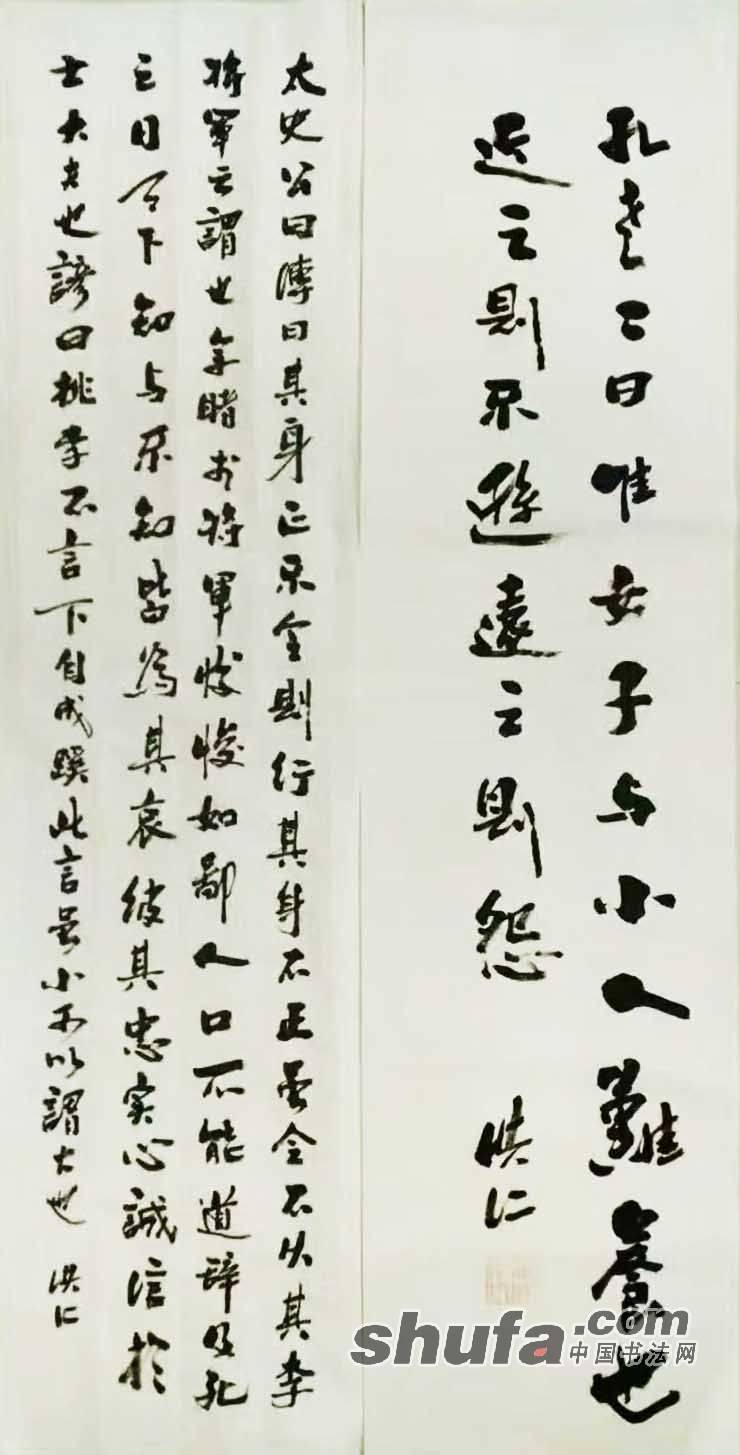 孔老二曰唯女子与小人難養也
近之則不遜遠之則怨 洪仁
太史公曰傳曰其身正不令則行其身不正虽令不从其李
將軍之謂也余睹於将軍悛悛如鄙人口不能道辞及死
之日天下知与不知皆為其哀彼其忠实心誠信於
士大夫也諺曰桃李不言下自成蹊此言虽小可以謂大也 洪仁
shufa.com
中国书法网